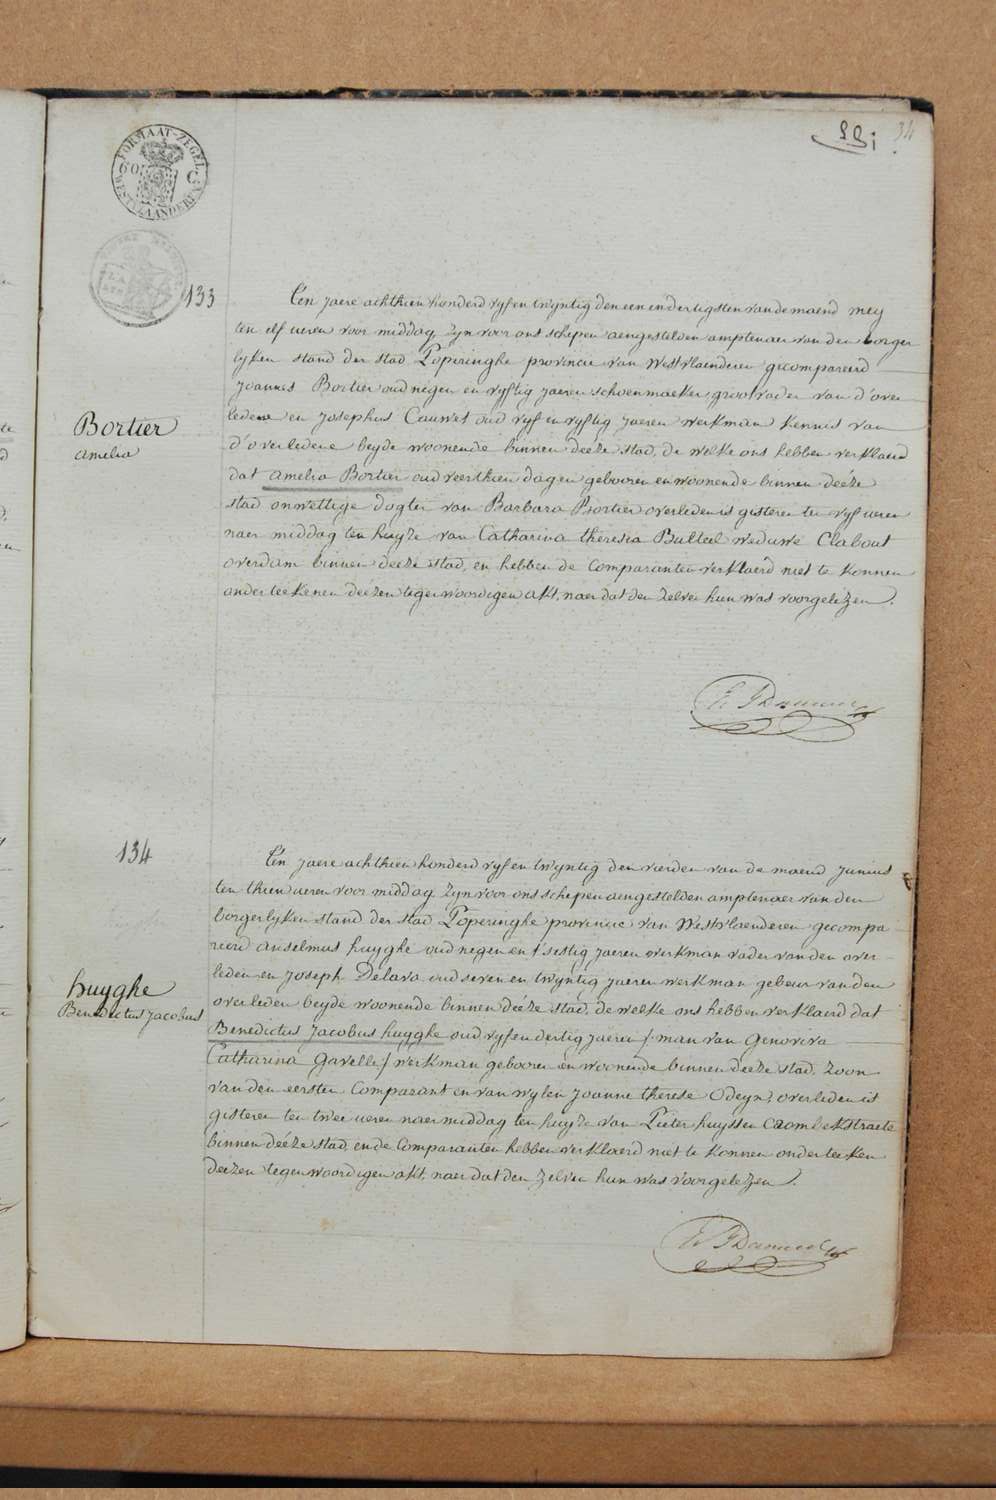 34
FORMAAT-ZEGEL
60 C
WESTVLAANDEREN
133
Een jaere achthien honderd vyf en twyntig den een en dertigsten van de maend mey
ten elf ueren voor middag zyn voor ons schepen aengestelden amptenaer van den borger
lyken stand der stad Poperinghe provincie van Westvlaenderen gecompareerd
Joannes Bortier oud negen en vyftig jaeren schoenmaeker grootvader van d'over
ledene en Josephus Cauwet oud vyf en vyftig jaeren werkman kennis van
d'overledene beyde woonende binnen deéze stad, de welke ons hebben verklaerd
dat amelia Bortier oud veerthien dagen gebooren en woonende binnen deéze
stad onwettige dogter van Barbara Bortier overleden is gisteren ten vyf ueren
naer middag ten huyze van Catharina theresia Butteel weduwe Clabout
overdam binnen deéze stad, en hebben de Comparanten verklaerd niet te konnen
onderteekenen deézen tegenwoordigen akt, naer dat den zelven hun was voorgelezen.
Bortier
amelia
134
Een jaere achthien honderd vyf en twyntig den vierden van de maend Junius
ten thien ueren voor middag zyn voor ons schepen aengestelden amptenaer van den
borgerlyken stand der stad Poperinghe provincie van Westvlaenderen gecompa
reerd anselmus huyghe oud negen en t'sestig jaeren werkman vader van den over-
leden en Joseph Delava oud seven en twyntig jaeren werkman gebeur van den
overleden beyde woonende binnen deéze stad, de welke ons hebben verklaerd dat
Benedictus Jacobus huyghe oud vyf en dertig jaeren /: man van Genoviva
Catharina Gavelle / werkman gebooren en woonende binnen deeze stad, zoon
van den eersten Comparant en van wylen Joanne therese Odeyn, overleden is
gisteren ten twee ueren naer middag ten huyze van Pieter huyssen Crombekstraete
binnen deéze stad, en de Comparanten hebben verklaerd niet te konnen onderteeken
deézen tegenwoordigen akt, naer dat den zelven hun was voorgelezen.
huyghe
Benedictus Jacobus